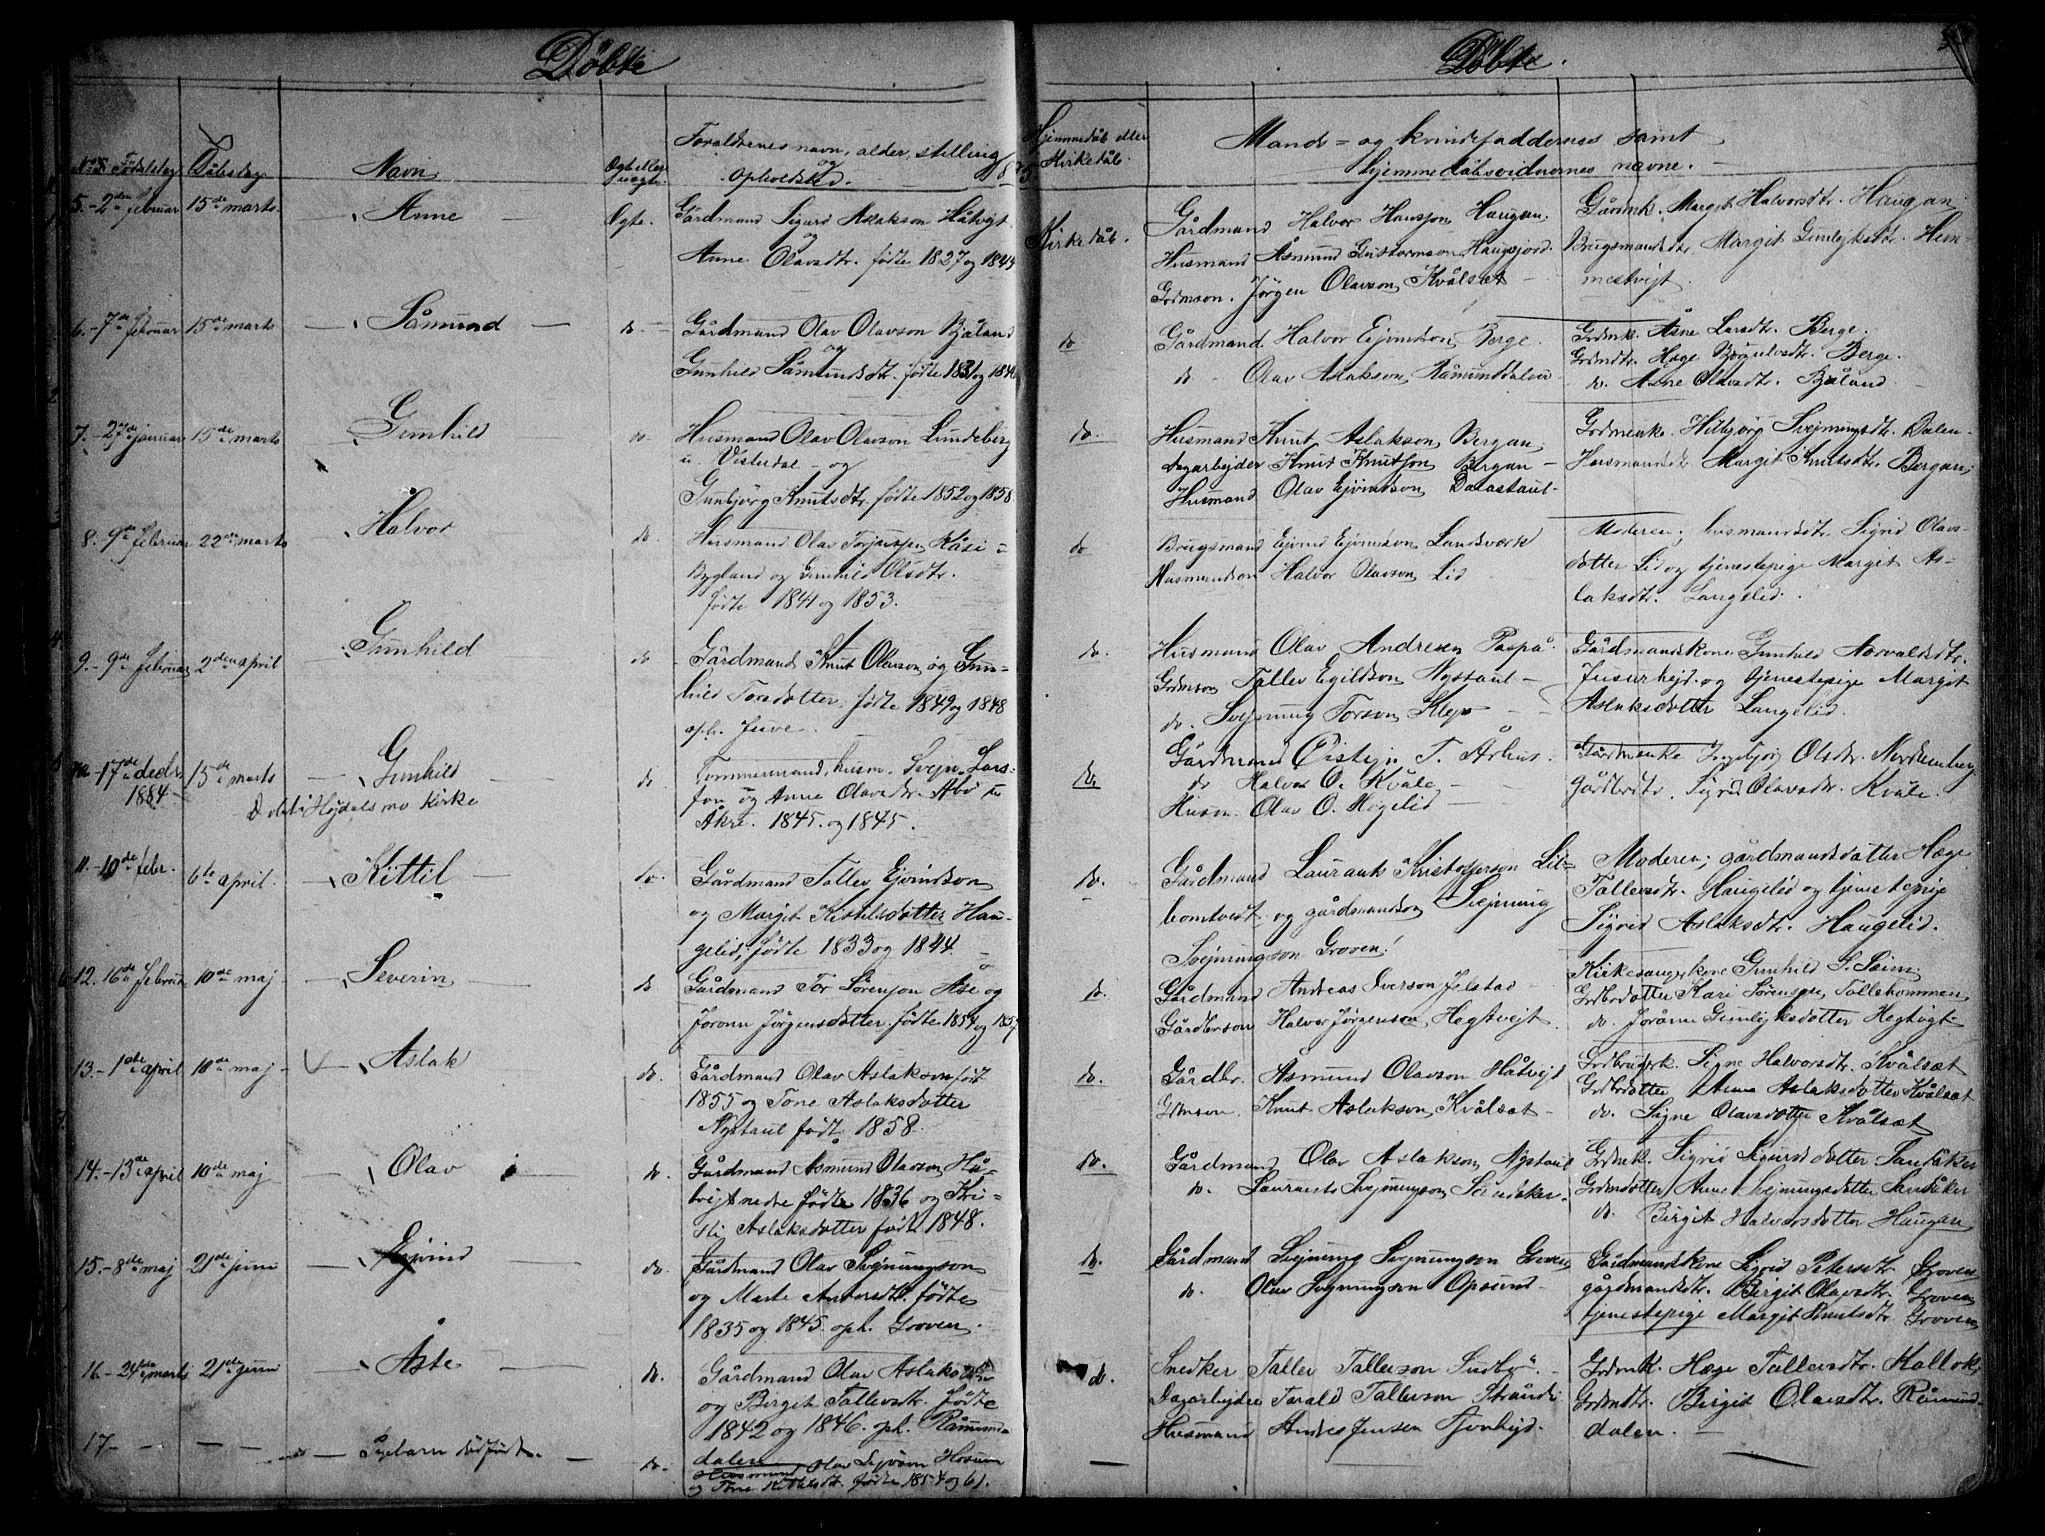 Döbte
Döbte.
No. Fødselsdag Dåbsdag Navn Ægte eller uægte. Forældrenes navn, alder, stilling
og
opholdsted. 18 85
Hjemmedåb eller
Kirkedåb.
Mands- og kvindefaddernes samt
hjemmedåbsvidnernes navne.
5. 2den februar 15de marts. Anne Ægte. Gårdmand Sigurd Aslakson Håtvejt
og
Anne Olavsdtr. fødte 1827 og
Kirkedåb.
Gårdmand Halvor Hansson Haugan.
Husmand Åsmund Guttormson Haugsjord
Grdmson. Jørgen Olavson Kvålsæt
Gårdmk. Margit Halvorsdtr. Haugan
Brugsmandsdtr Margit Gunlejksdtr. Hem-
mestvejt.
6. 7de februar 15de marts Såmund do Gårdmand Olav Olavson Bjåland
og
Gunhild Såmundsdtr. fødte 1831 og
do
Gårdmand Halvor Ejvindson Berge.
do - Olav Aslakson Råmunddalen
Grdmk. Åsne Larsdtr. Berge.
Grdmdtr. Hæge Bergulvsdtr. Berge.
do. Åsne Olavsdtr. Bjåland
7. 27de januar 15de marts Gunhild do. Husmand Olav Olavson Lundeberg
u. Vistedal og
Gunbjörg Knutsdtr. fødte 1852 og 1858
do.
Husmand Knut Aslakson Bergan,
dagarbejder Knut Knutson Bergan
Husmand Olav Ejvindson Dalastaul
Grdmenke. Hilbjörg Svejnungsdtr. Dalen
Husmandsdtr Margit Knutsdtr. Bergan,
8. 9de februar 22de marts Halvor do. Husmand Olav Torjusson Kåsi u
Bygland og Gunhild Olsdtr.
fødte 1841 og 1853.
do
Brugsmand Ejvind Ejvindson Landsverk
Husmandson Halvor Olavson Lid
Moderen; husmandsdtr. Sigrid Olavs-
dotter Lid og tjenestepige Margit As-
laksdtr. Langelid.
9. 9de februar 2den april Gunhild do Gårdmand Knut Olavson og Gun-
hild Torsdotter, fødte 1849 og 1848
oph. Juve.
do.
Husmand Olav Andresen Paspå.
Grdmson Tallev Egildson Nystaul
do. Svejnung Torson Klep
Gårdmandskone Gunhild Norvaldsdtr.
Jusurhejd og tjenestepige Margit
Aslaksdotter Langelid.
10 17de decbr. 15de marts Gunhild do Tømmermand, husm. Svejn Lars-
1884
Døbt i Højdalsmo kirke
son og Anne Olavsdtr. Åbø u
Åkre. 1845. og 1845.
do.
Gårdmand Østejn T. Århus.
do Halvor O. Kvåle
Husm. Olav O. Høgelid
Gårdmenke Ingebjörg Olsdtr. Nordenberg
gårdbrdtr. Sigrid Olavsdtr. Kvåle.
11. 10de febr. 6te april. Kittil do. Gårdmand Tallev Ejvindson
og Margit Kittilsdotter Hau-
gelid, fødte 1833 og 1844.
do.
Gårdmand Laurants Kristofferson Lil-
bomtvedt og gårdmandson Svejnung
Svejnungson Groven!
Moderen; gårdmandsdotter Hæge
Tallevsdtr. Haugelid og tjenestepige
Sigrid Aslaksdtr. Haugelid.
12. 16de februar 10de maj Severin do Gårdmand Tor Sørenson Åse og
Joronn Jørgensdotter, fødte 1854 og 1857
do.
Gårdmand Andreas Iverson Jelstad
Gårdbrson Halvor Jørgenson Hegtvejt
Kirkesangerkone Gunhild S. Sæim
Grdbrdotter Kari Sørensdtr. Tollehommen
do. Joränn Gunlejksdotter Hegtvejt
13. 1ste april 10de maj Aslak do. Gårdmand Olav Aslakson født
1855 og Tone Aslaksdotter
Nystaul født 1858.
do.
Gårdbr. Åsmund Olavson Håtvejt
Grdmson. Knut Aslakson Kvålsæt
Grdbrugerk. Signe Halvorsdtr. Kvålsæt
Grdbrdotter Anne Aslaksdotter Kvålsæt
do. Signe Olavsdotter Kvålsæt
14. 13de april 10de maj Olav do. Gårdmand Åsmund Olavson Hå-
tvejt nedre fødte 1836 og Kri-
sti Aslaksdotter født 1848.
do.
Gårdmand Olav Aslakson Nystaul
do. Laurants Svejnungson Sandåker.
Grdmk. Sigrid Sigurdsdotter Sandåker
Grdmdotter Anne Svejnungsdotter Sandåker
do. Birgit Halvorsdotter Haugan
15. 8de maj 21de juni Ejvind do. Gårdmand Olav Svejnungson
og Marte Andersdtr. fødte
1835 og 1845. oph. Groven.
do.
Gårdmand Svejnung Svejnungson Groven
do. Olav Svejnungson Opsund
Gårdmandskone Sigrid Petersdtr. Groven
gårdmandsdtr. Birgit Olavsdtr. Groven
tjenestepige Margit Knutsdtr. Groven
16. 24de marts 21de juni Åste do. Gårdmand Olav Aslakson
og Birgit Tallevsdtr. fødte
1842 og 1846. oph. Råmun-
dalen
do.
Snedker Tallev Tallevson Sudbø
Dagarbejder Tarald Tallevson Strånd
Husmand Andres Jensen Tjonhejd.
Grdmk. Hæge Tallevsdtr. Kallok
Grdmdtr. Birgit Olavsdtr. Råmund-
dalen.
17 Pigebarn dødfødt. do. Husmand Olav Ejvson
og Tone Kittilsdtr. fødte 1854 og 61.